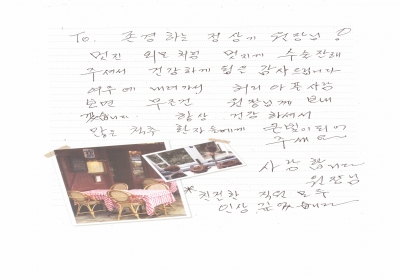 To. 존경하는 정상기 원장님!
멋진 외모처럼 멋지게 수술잘해
주셔서 건강하게 됨을 감사드립니다
여수에 내려가서 허리아픈사람
보면 무조건 원장님께 보내
겠습니다. 항상 건강하셔서
많은 척추 환자들에게 큰빛이되어
주세요
사랑합니다
원장님
*친절한 직원 모두
인상 깊었습니다